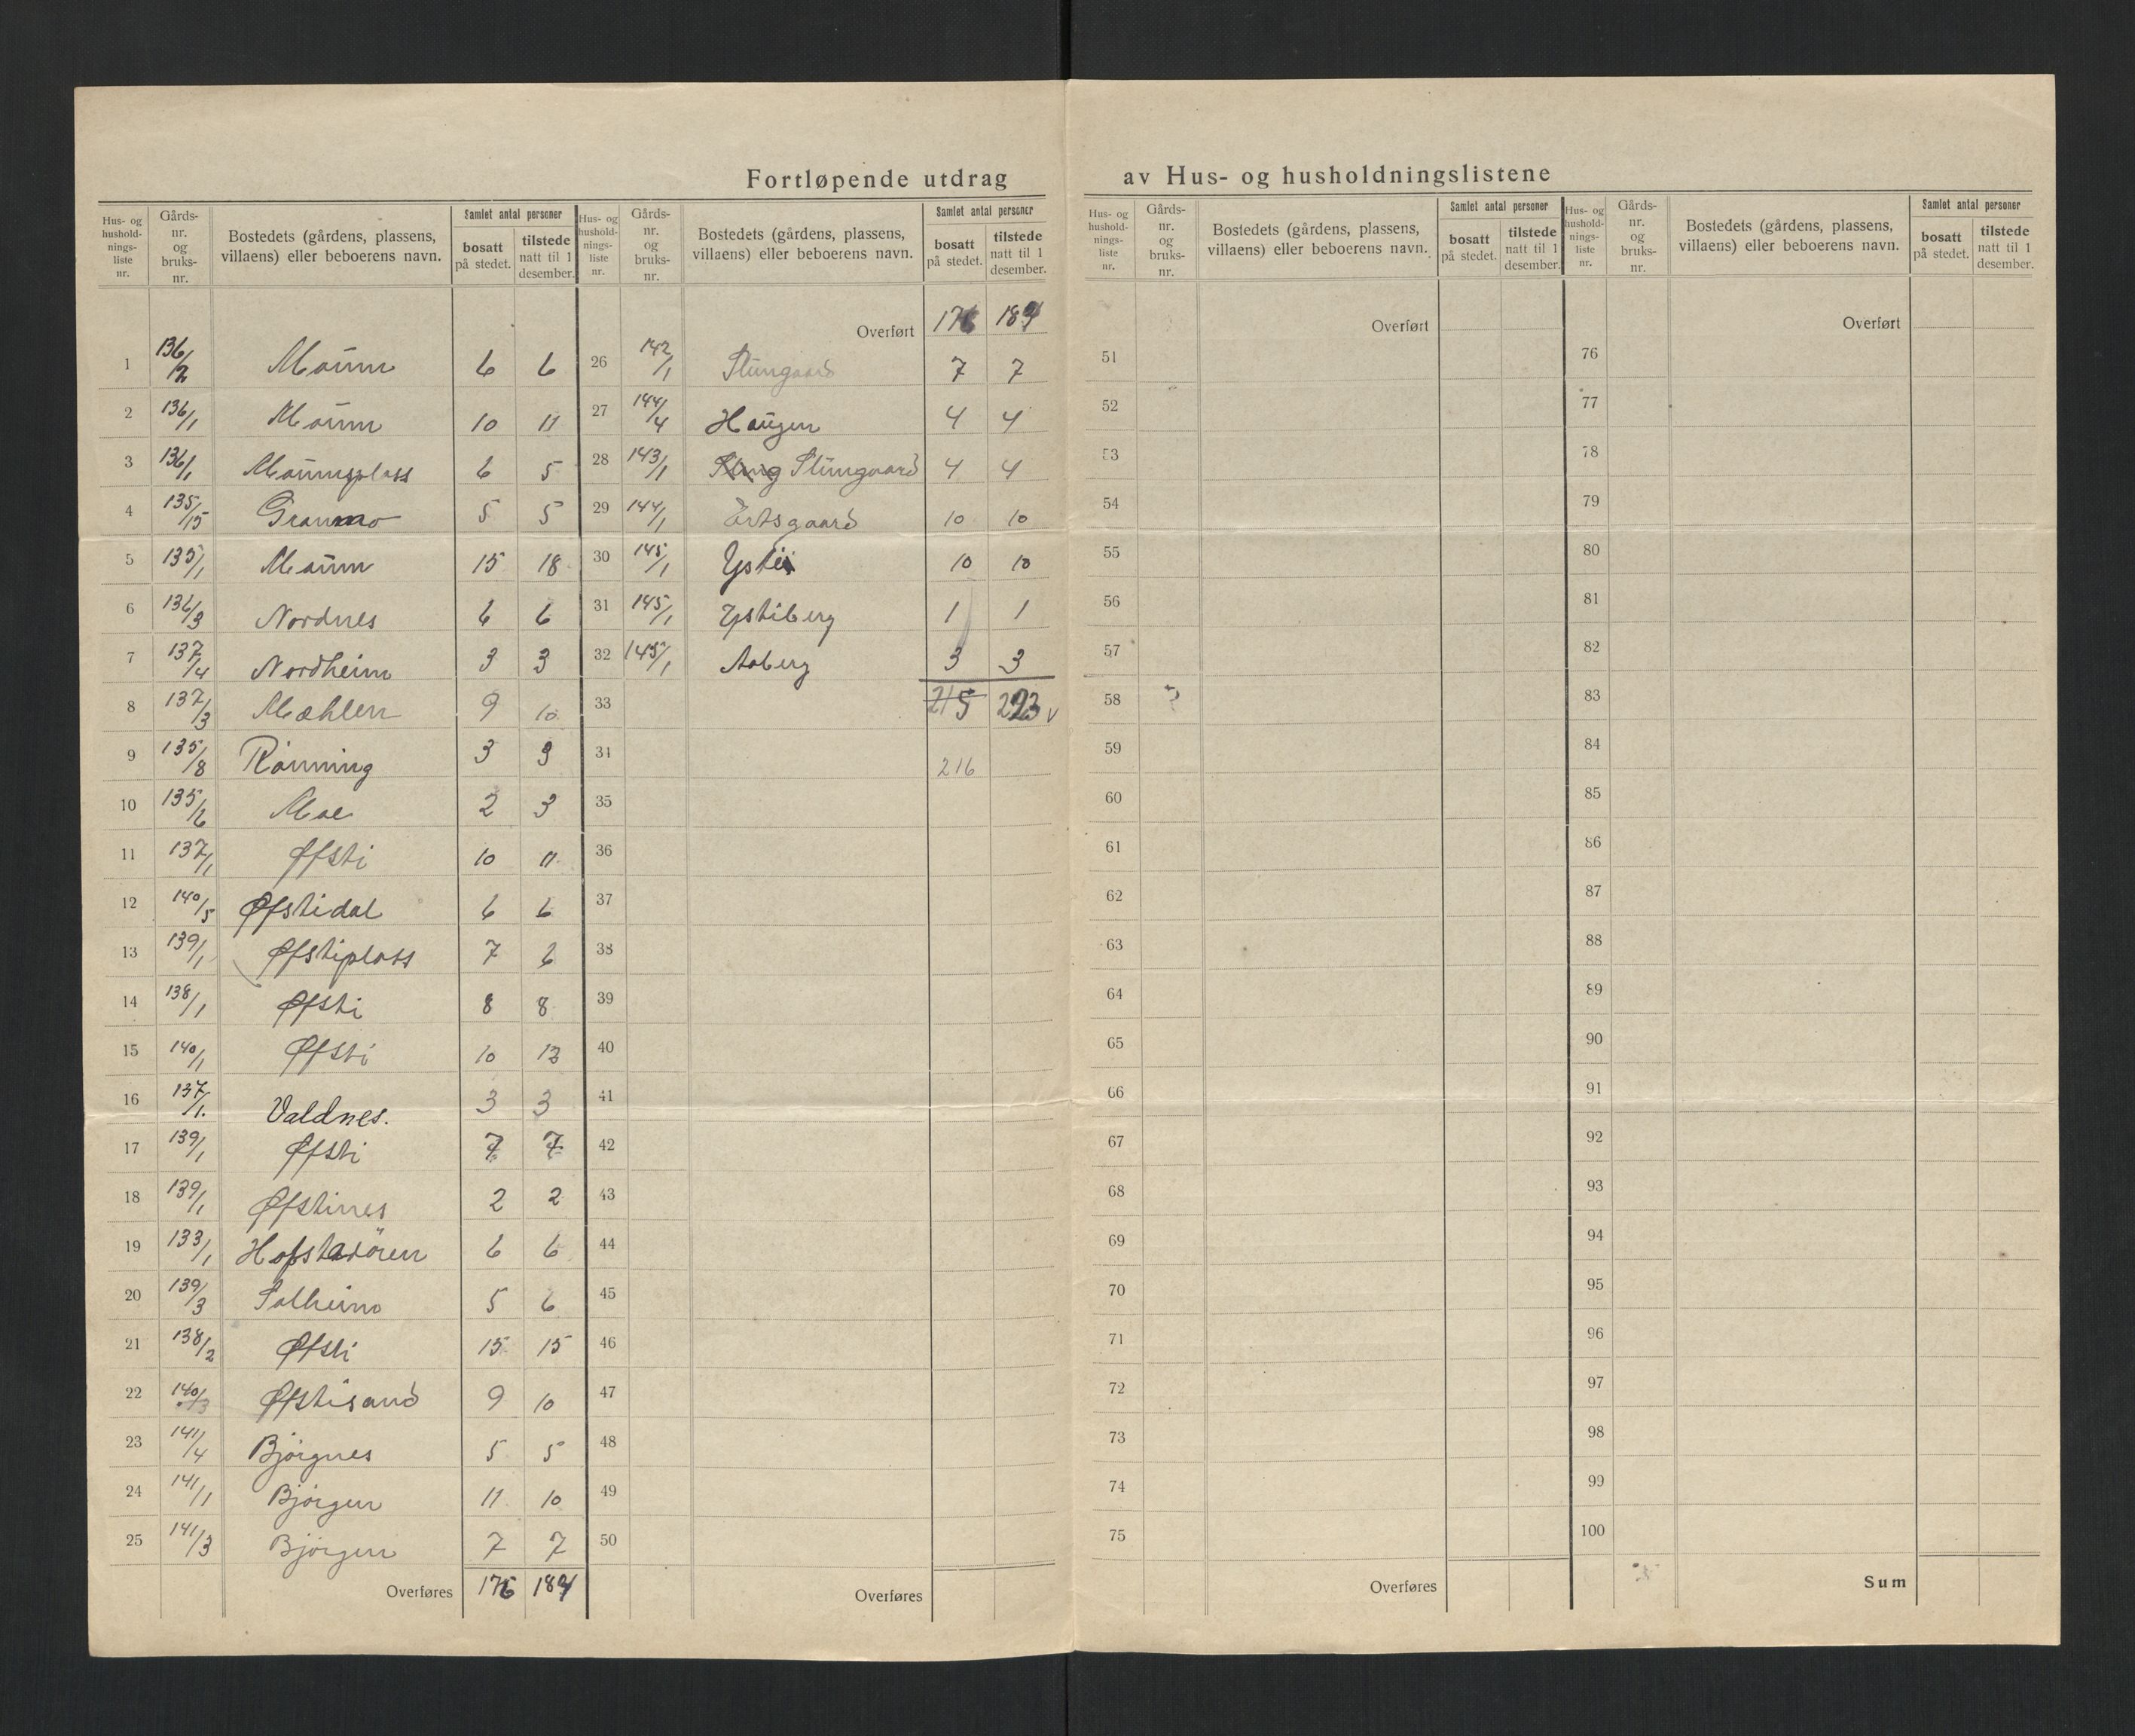 Fortløpende utdrag av Hus- og husholdningslistene
Hus- og hushold-nings-liste nr. | Gårds-nr. og bruks-nr. | Bostedets (gårdens, plassens, villaens) eller beboerens navn. | Samlet antal personer | bosatt på stedet. | tilstede natt til 1 desember.
1 136/2 Mörum 6 6
2 136/1 10 11
3 136/1 6 5
4 135/15 Granmo 5 5
5 135/1 15 18
6 136/3 Nordnes 6 6
7 137/4 Nordheim 3 3
8 137/3 Mæhlen 9 10
9 135/8 Rönning 3 3
10 135/6 Moe 2 3
11 137/1 Øfsti 10 11
12 140/5 Øfstidal 6 6
13 139/1 Øfstiplass 7 6
14 138/1 Øfsti 8 8
15 140/1 Øfsti 10 12
16 137/1. Valdnes. 3 3
17 139/1 Øfsti 7 7
18 139/1 Øfstines 2 2
19 133/1 Hofstadören 6 6
20 139/3 Solheim 5 6
21 138/2 Øfsti 15 15
22 140/3 Øfstisand 9 10
23 141/4 Björgnes 5 5
24 141/1 Björgen 11 10
25 141/3 Björgen 7 7
Overføres 176 184
Hus- og hushold-nings-liste nr. | Gårds-nr. og bruks-nr. | Bostedets (gårdens, plassens, villaens) eller beboerens navn. | Samlet antal personer | bosatt på stedet. | tilstede natt til 1 desember.
Overført 176 184
26 142/1 7 7
27 144/4 Haugen 4 4
28 143/1 4 4
29 144/1 Ertsgaard 10 10
30 145/1 Ysti 10 10
31 145/1 Ystiberg 1 1
32 145/1 Aaberg 3 3
33 215 223 v
34 216
35
36
37
38
39
40
41
42
43
44
45
46
47
48
49
50
Overføres
Hus- og hushold-nings-liste nr. | Gårds-nr. og bruks-nr. | Bostedets (gårdens, plassens, villaens) eller beboerens navn. | Samlet antal personer | bosatt på stedet. | tilstede natt til 1 desember.
Overført
51
52
53
54
55
56
57
58
59
60
61
62
63
64
65
66
67
68
69
70
71
72
73
74
75
Overføres
Hus- og hushold-nings-liste nr. | Gårds-nr. og bruks-nr. | Bostedets (gårdens, plassens, villaens) eller beboerens navn. | Samlet antal personer | bosatt på stedet. | tilstede natt til 1 desember.
Overført
76
77
78
79
80
81
82
83
84
85
86
87
88
89
90
91
92
93
94
95
96
97
98
99
100
Sum